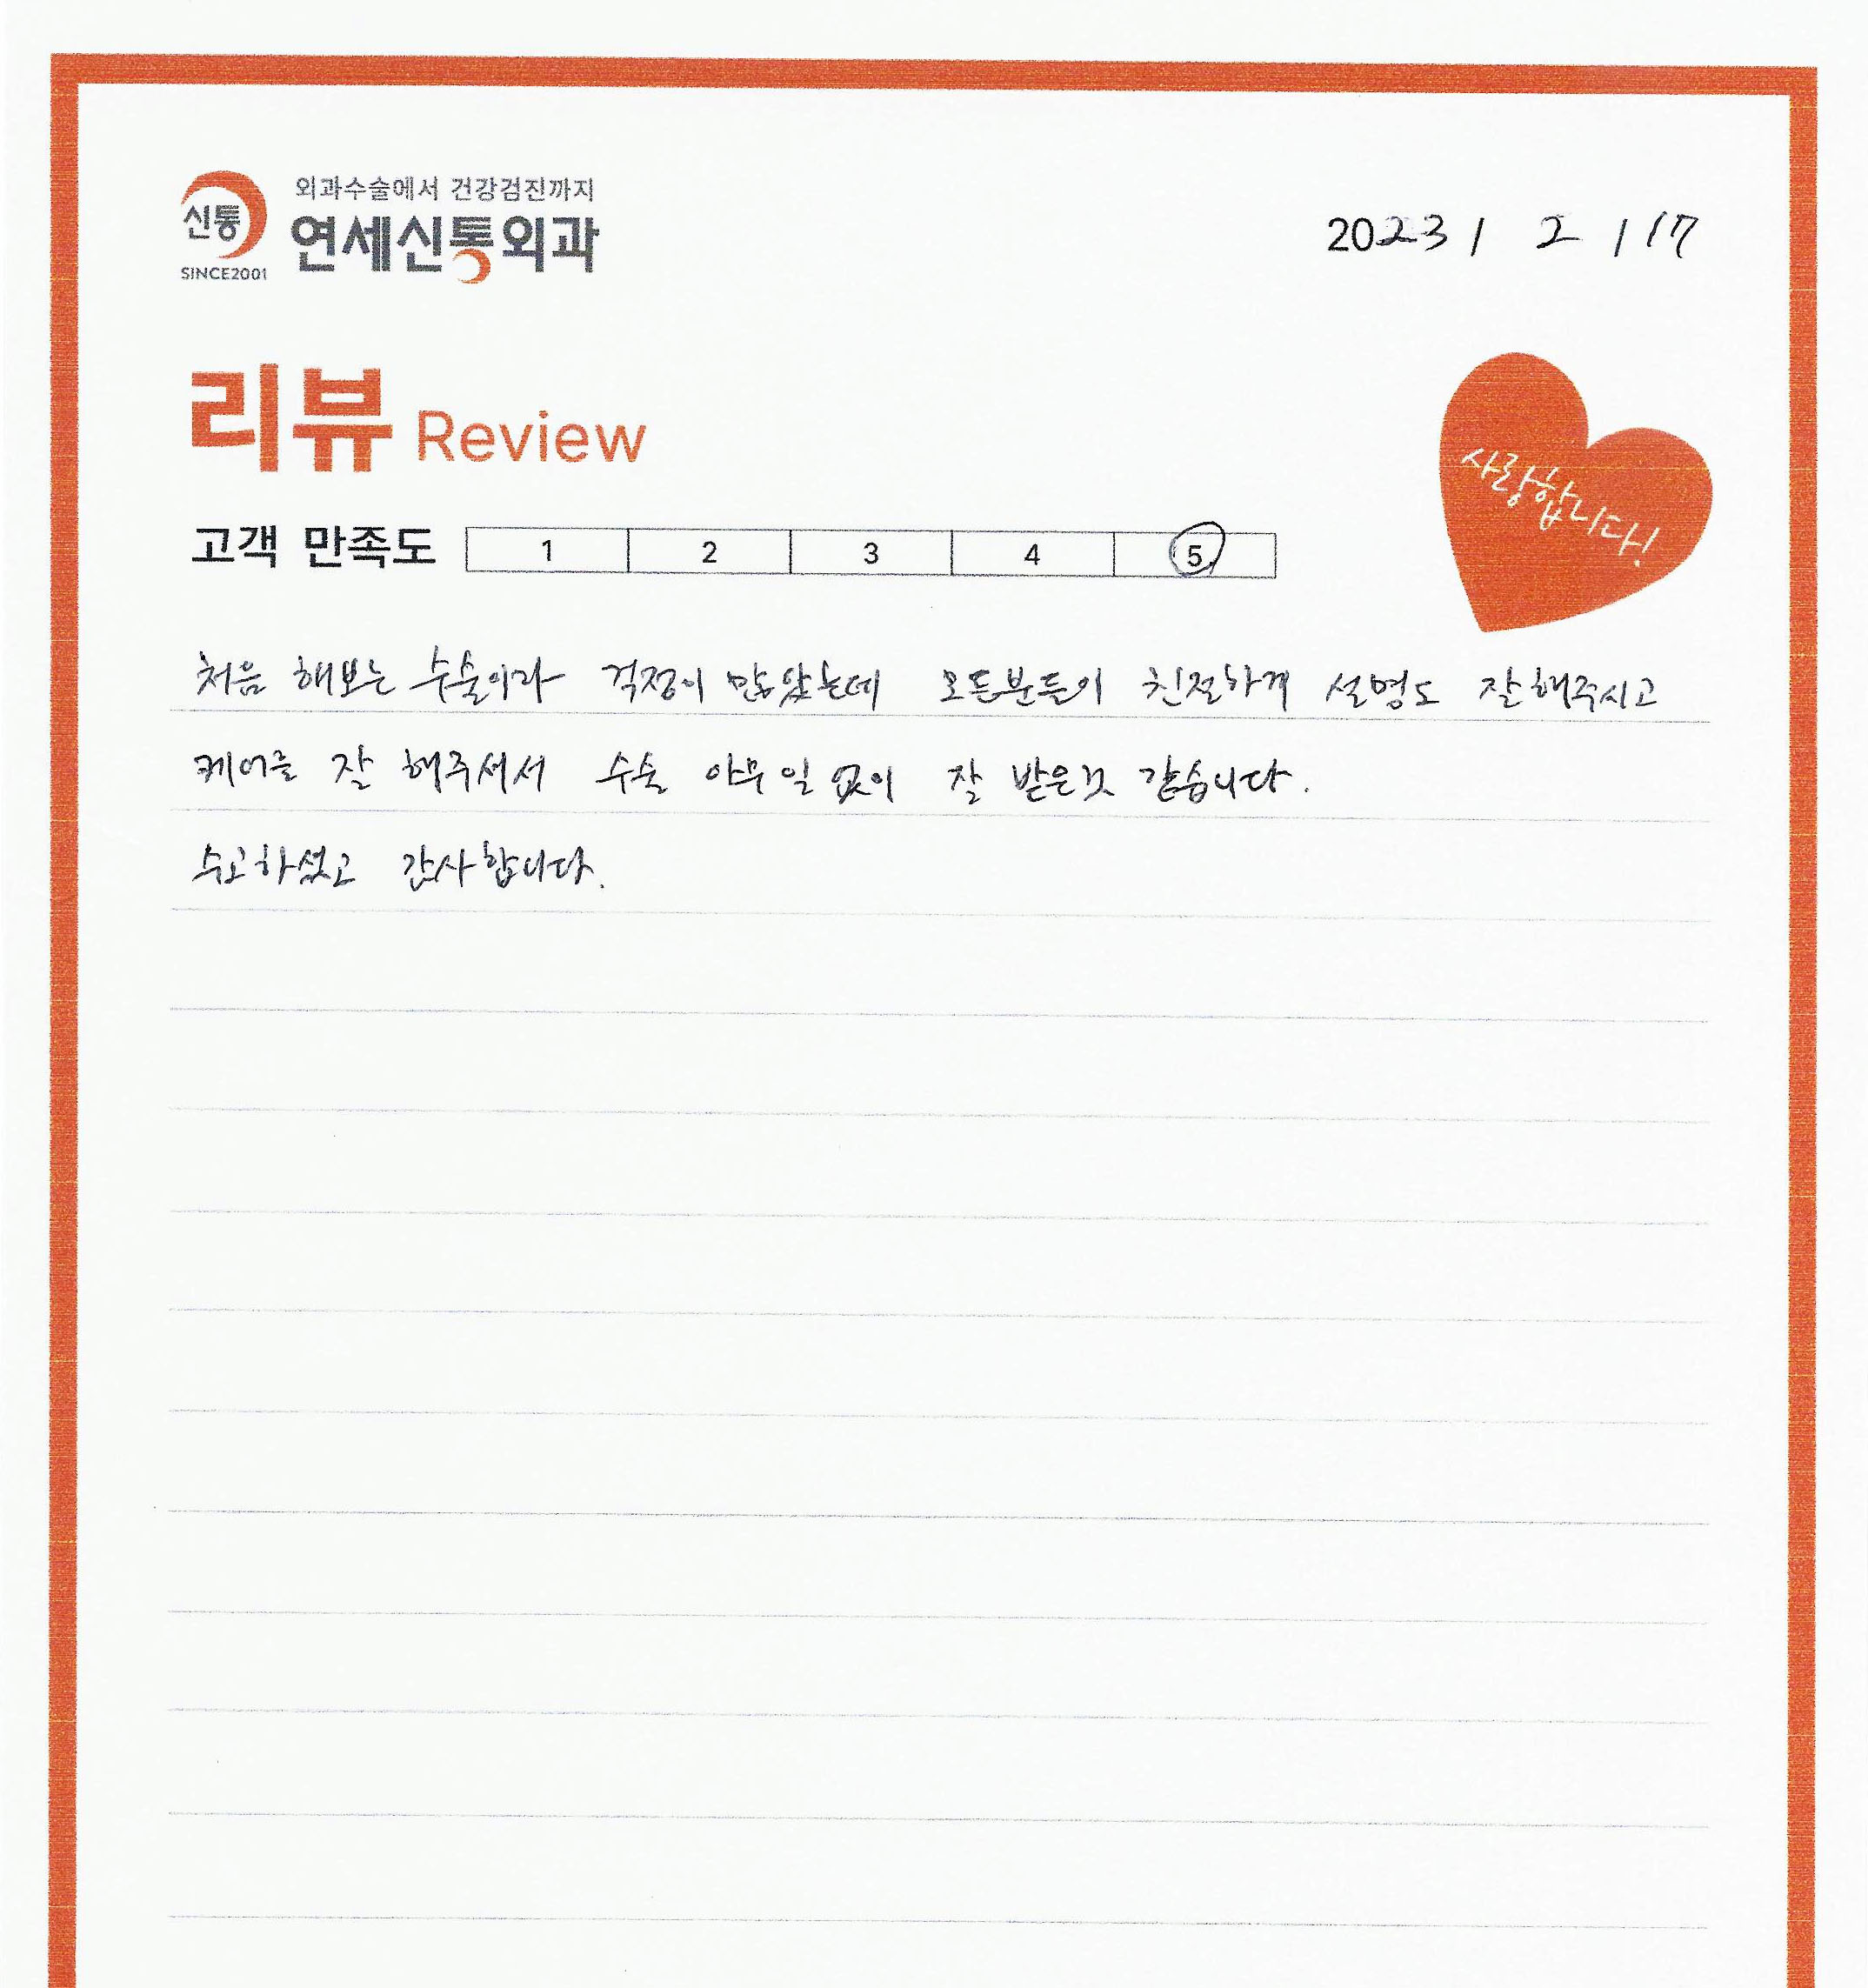 신통
SINCE2001
외과수술에서 건강검진까지
연세신통외과
2023 / 2 / 17
리뷰 Review
사랑합니다!
고객 만족도 1 2 3 4 5
처음 해보는 수술이라 걱정이 많았는데 모든분들이 친절하게 설명도 잘해주시고
케어를 잘 해주셔서 수술 아무일 없이 잘 받은것 같습니다.
수고하셨고 감사합니다.